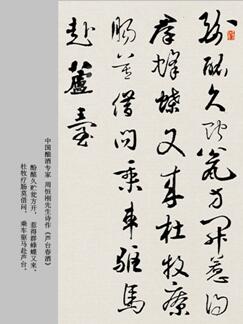 醅久贮瓮方开惹得
群蜂蝶又来杜牧疗
肠莫借问乘车驱馬
赴蘆臺
中国酿酒专家 周恒刚先生诗作《芦台春酒》
醅久贮瓮方开，惹得群蜂蝶又来。
杜牧疗肠莫借问，乘车驱马赴芦台。